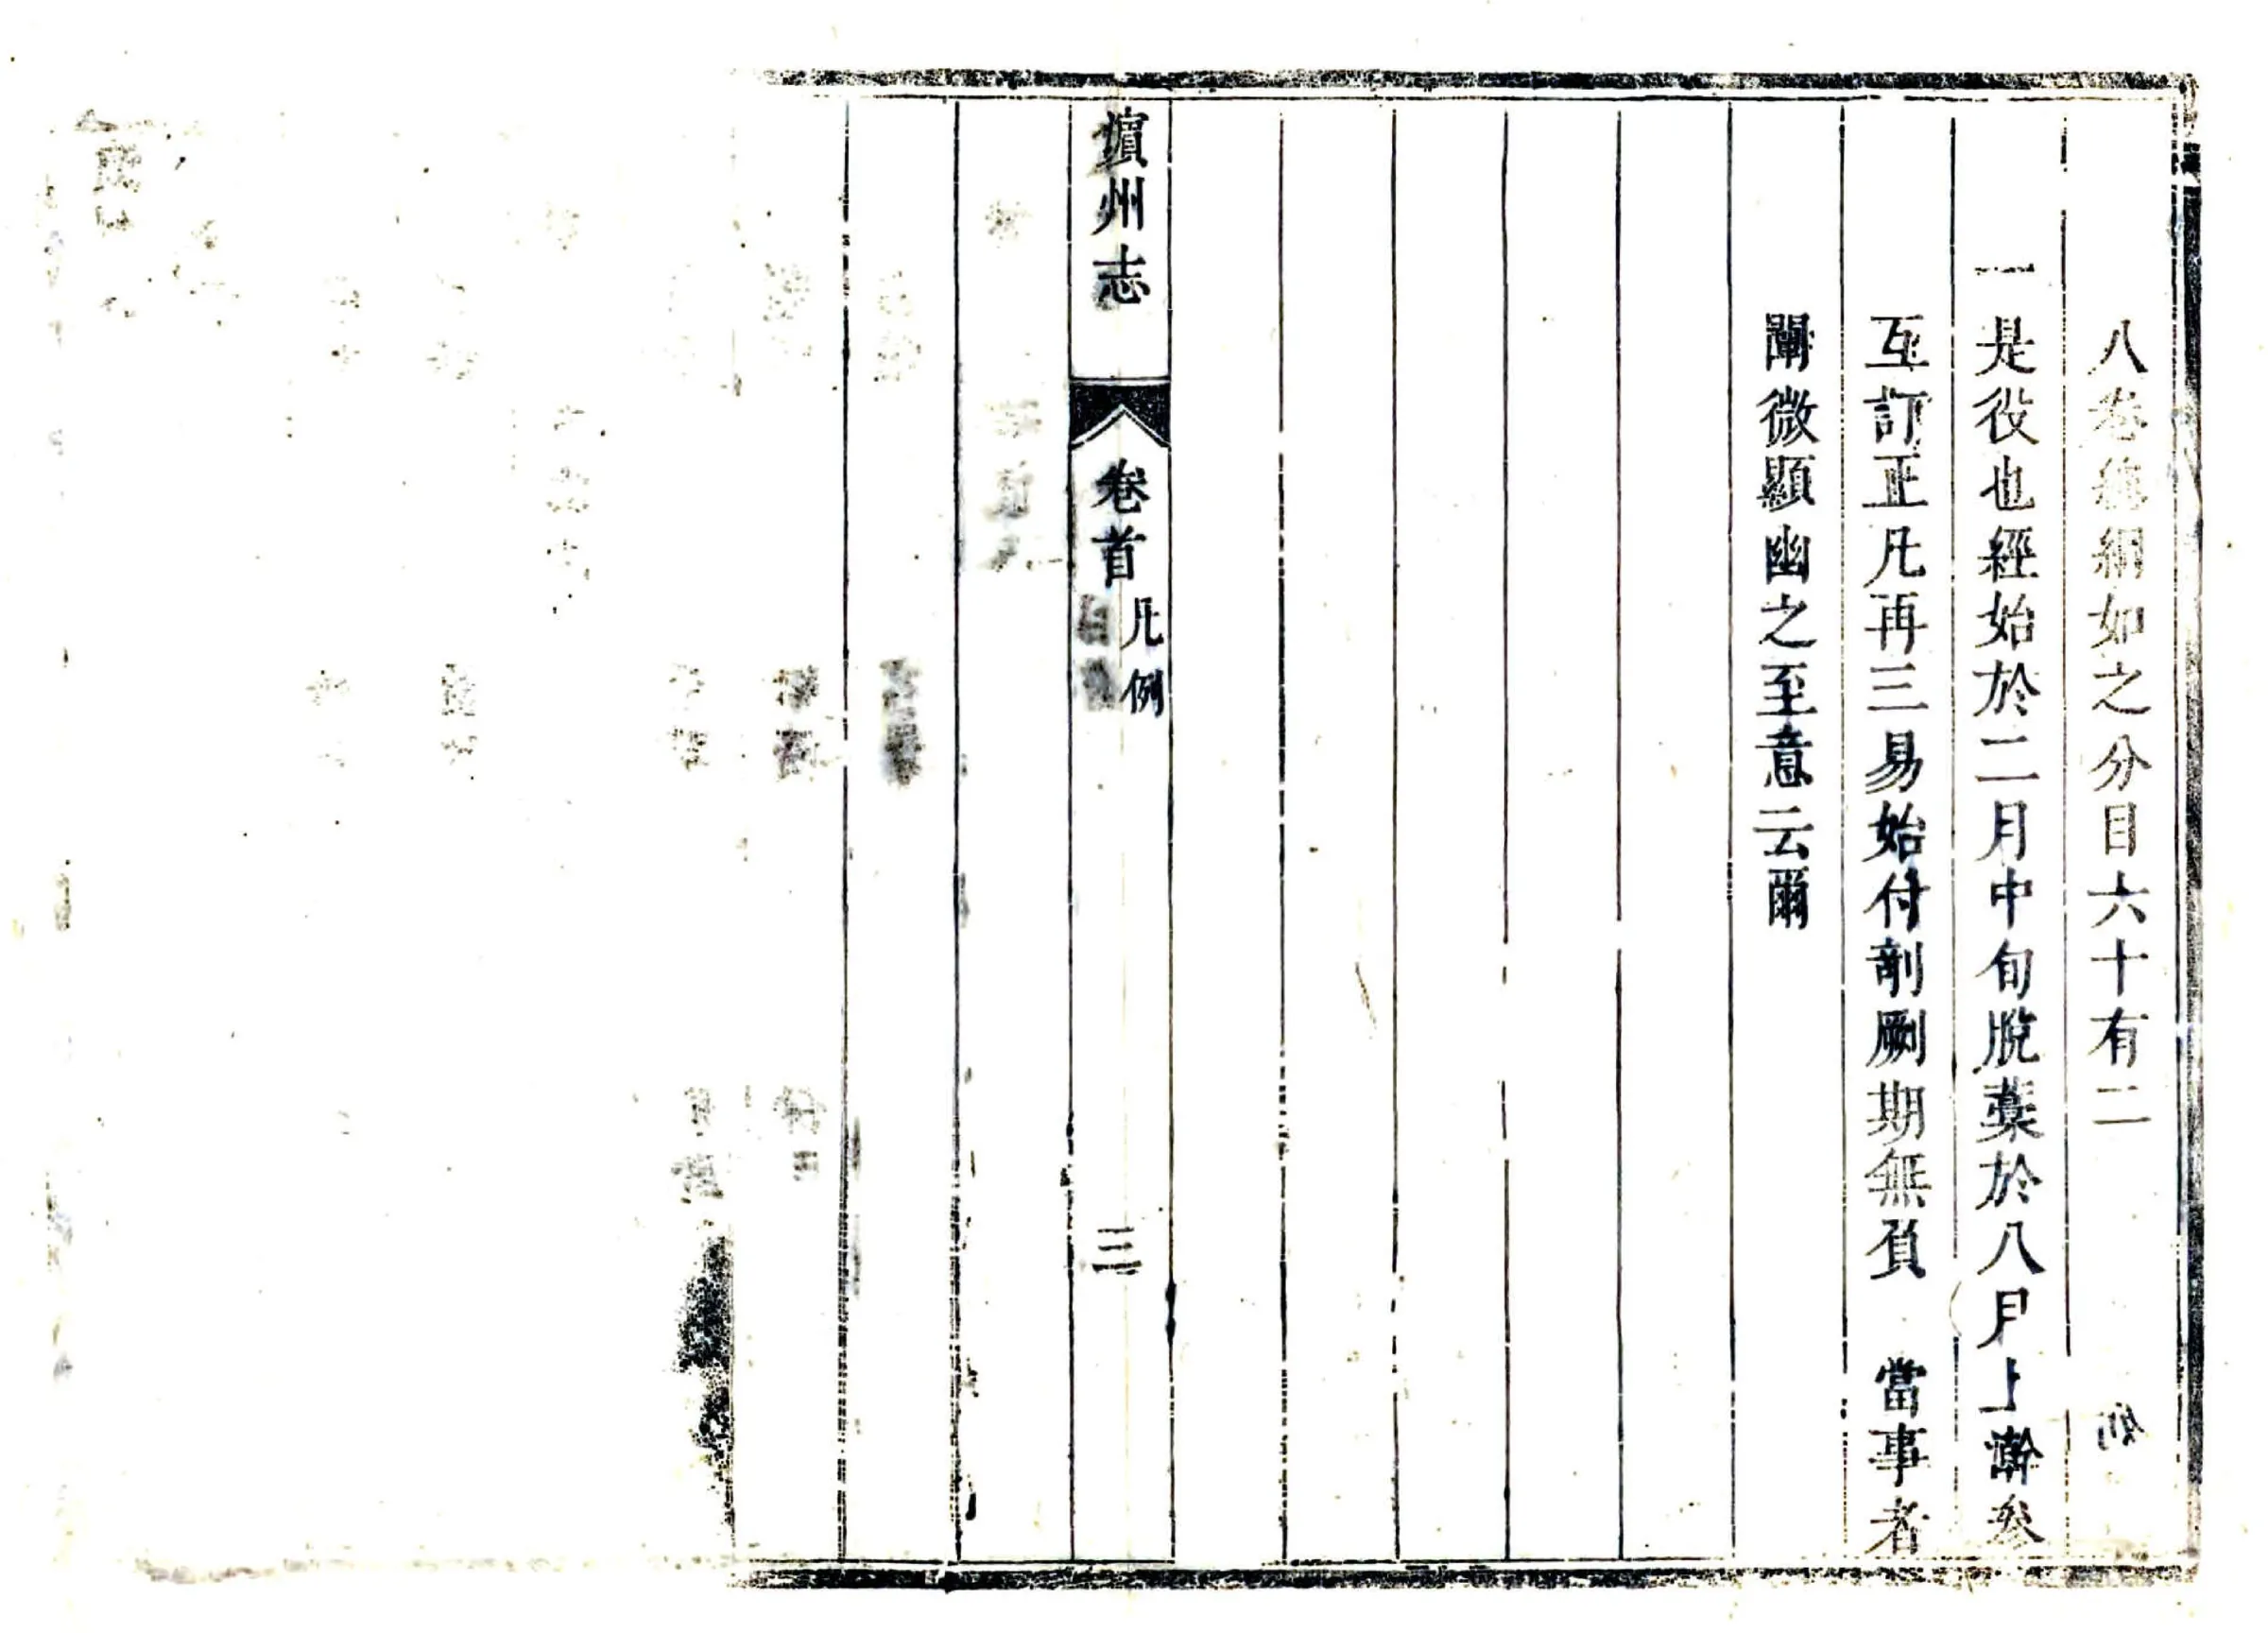 八卷總綱如之分目六十有二
一是役也經始於二月中旬脫藁於八月上澣參
互訂正凡再三易始付剞劂期無負　當事者
闡微顯幽之至意云爾
濵州志　卷首　凡例　三